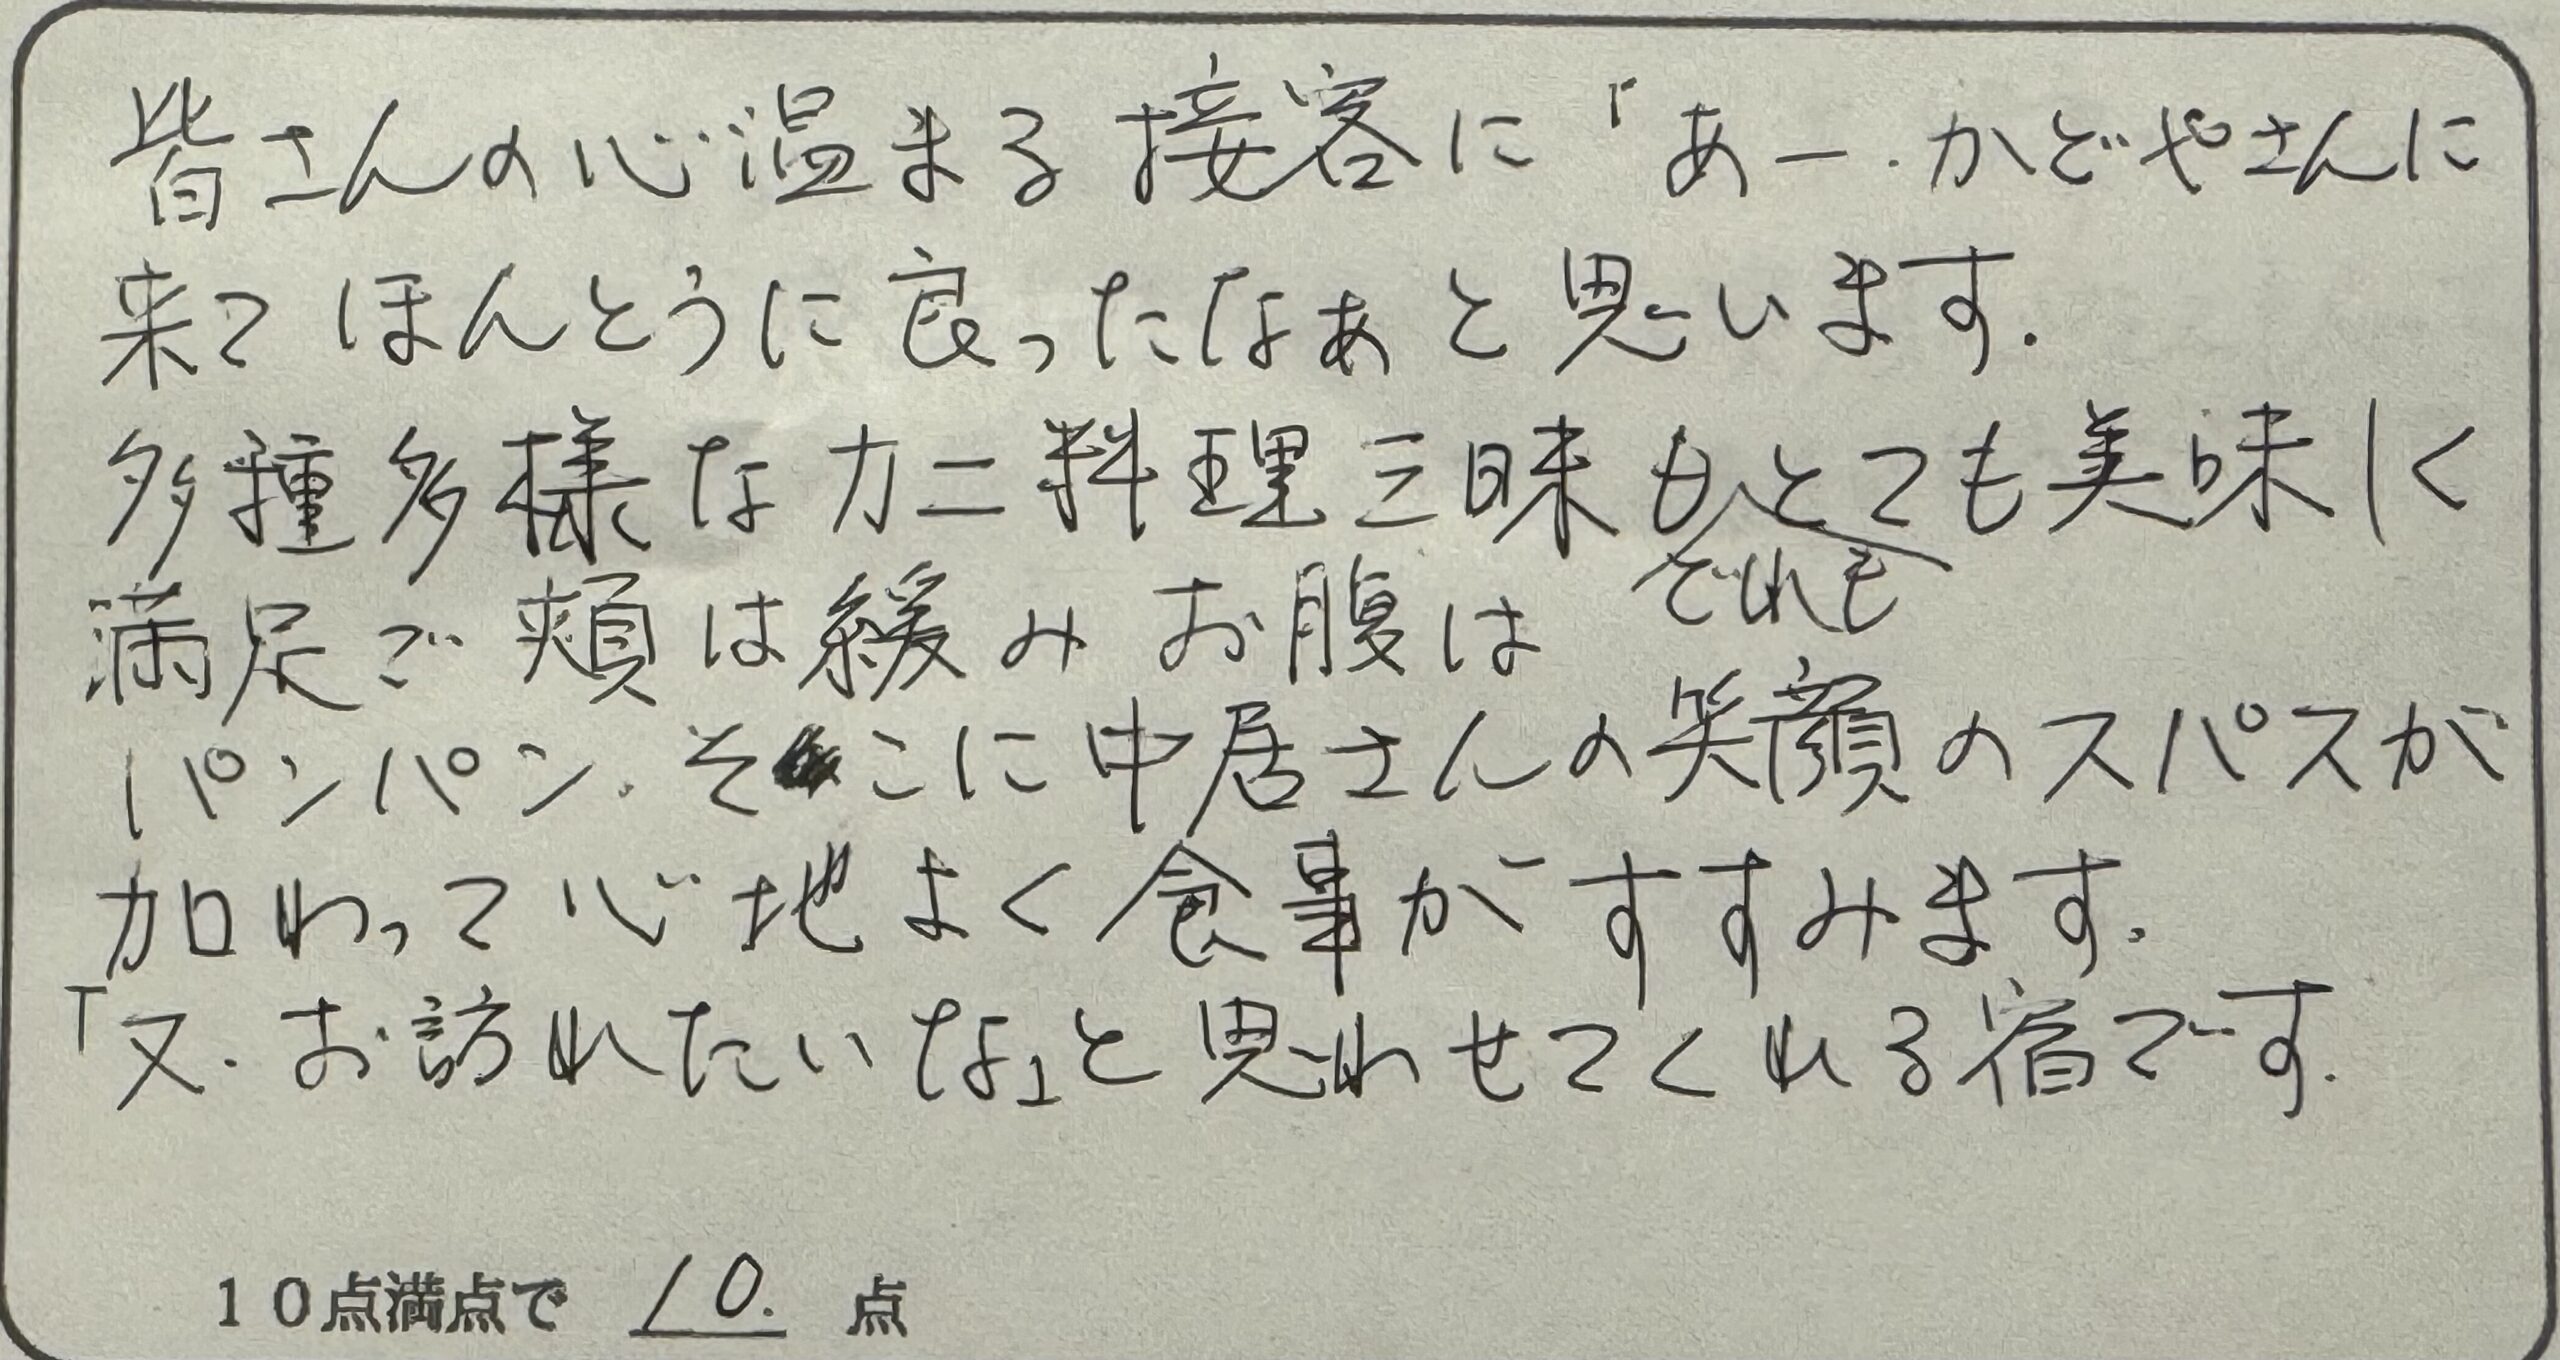 皆さんの心温まる接客に「あー、かどやさんに
来てほんとうに良ったなぁと思います.
多種多様なカニ料理三昧もどれもとても美味しく
満足で頬は緩みお腹は
パンパン.そこに中居さんの笑顔のスパスが
加わって心地よく食事がすすみます.
「又.お訪れたいな」と思わせてくれる宿です.
10点満点で 10. 点